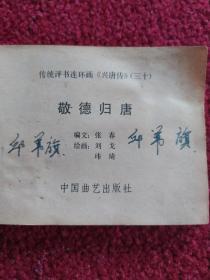 传统评书连环画《兴唐传》(三十)
敬德归唐
编文：张春
绘画：刘戈
玮琦
邱第旗 邱第旗
中国曲艺出版社